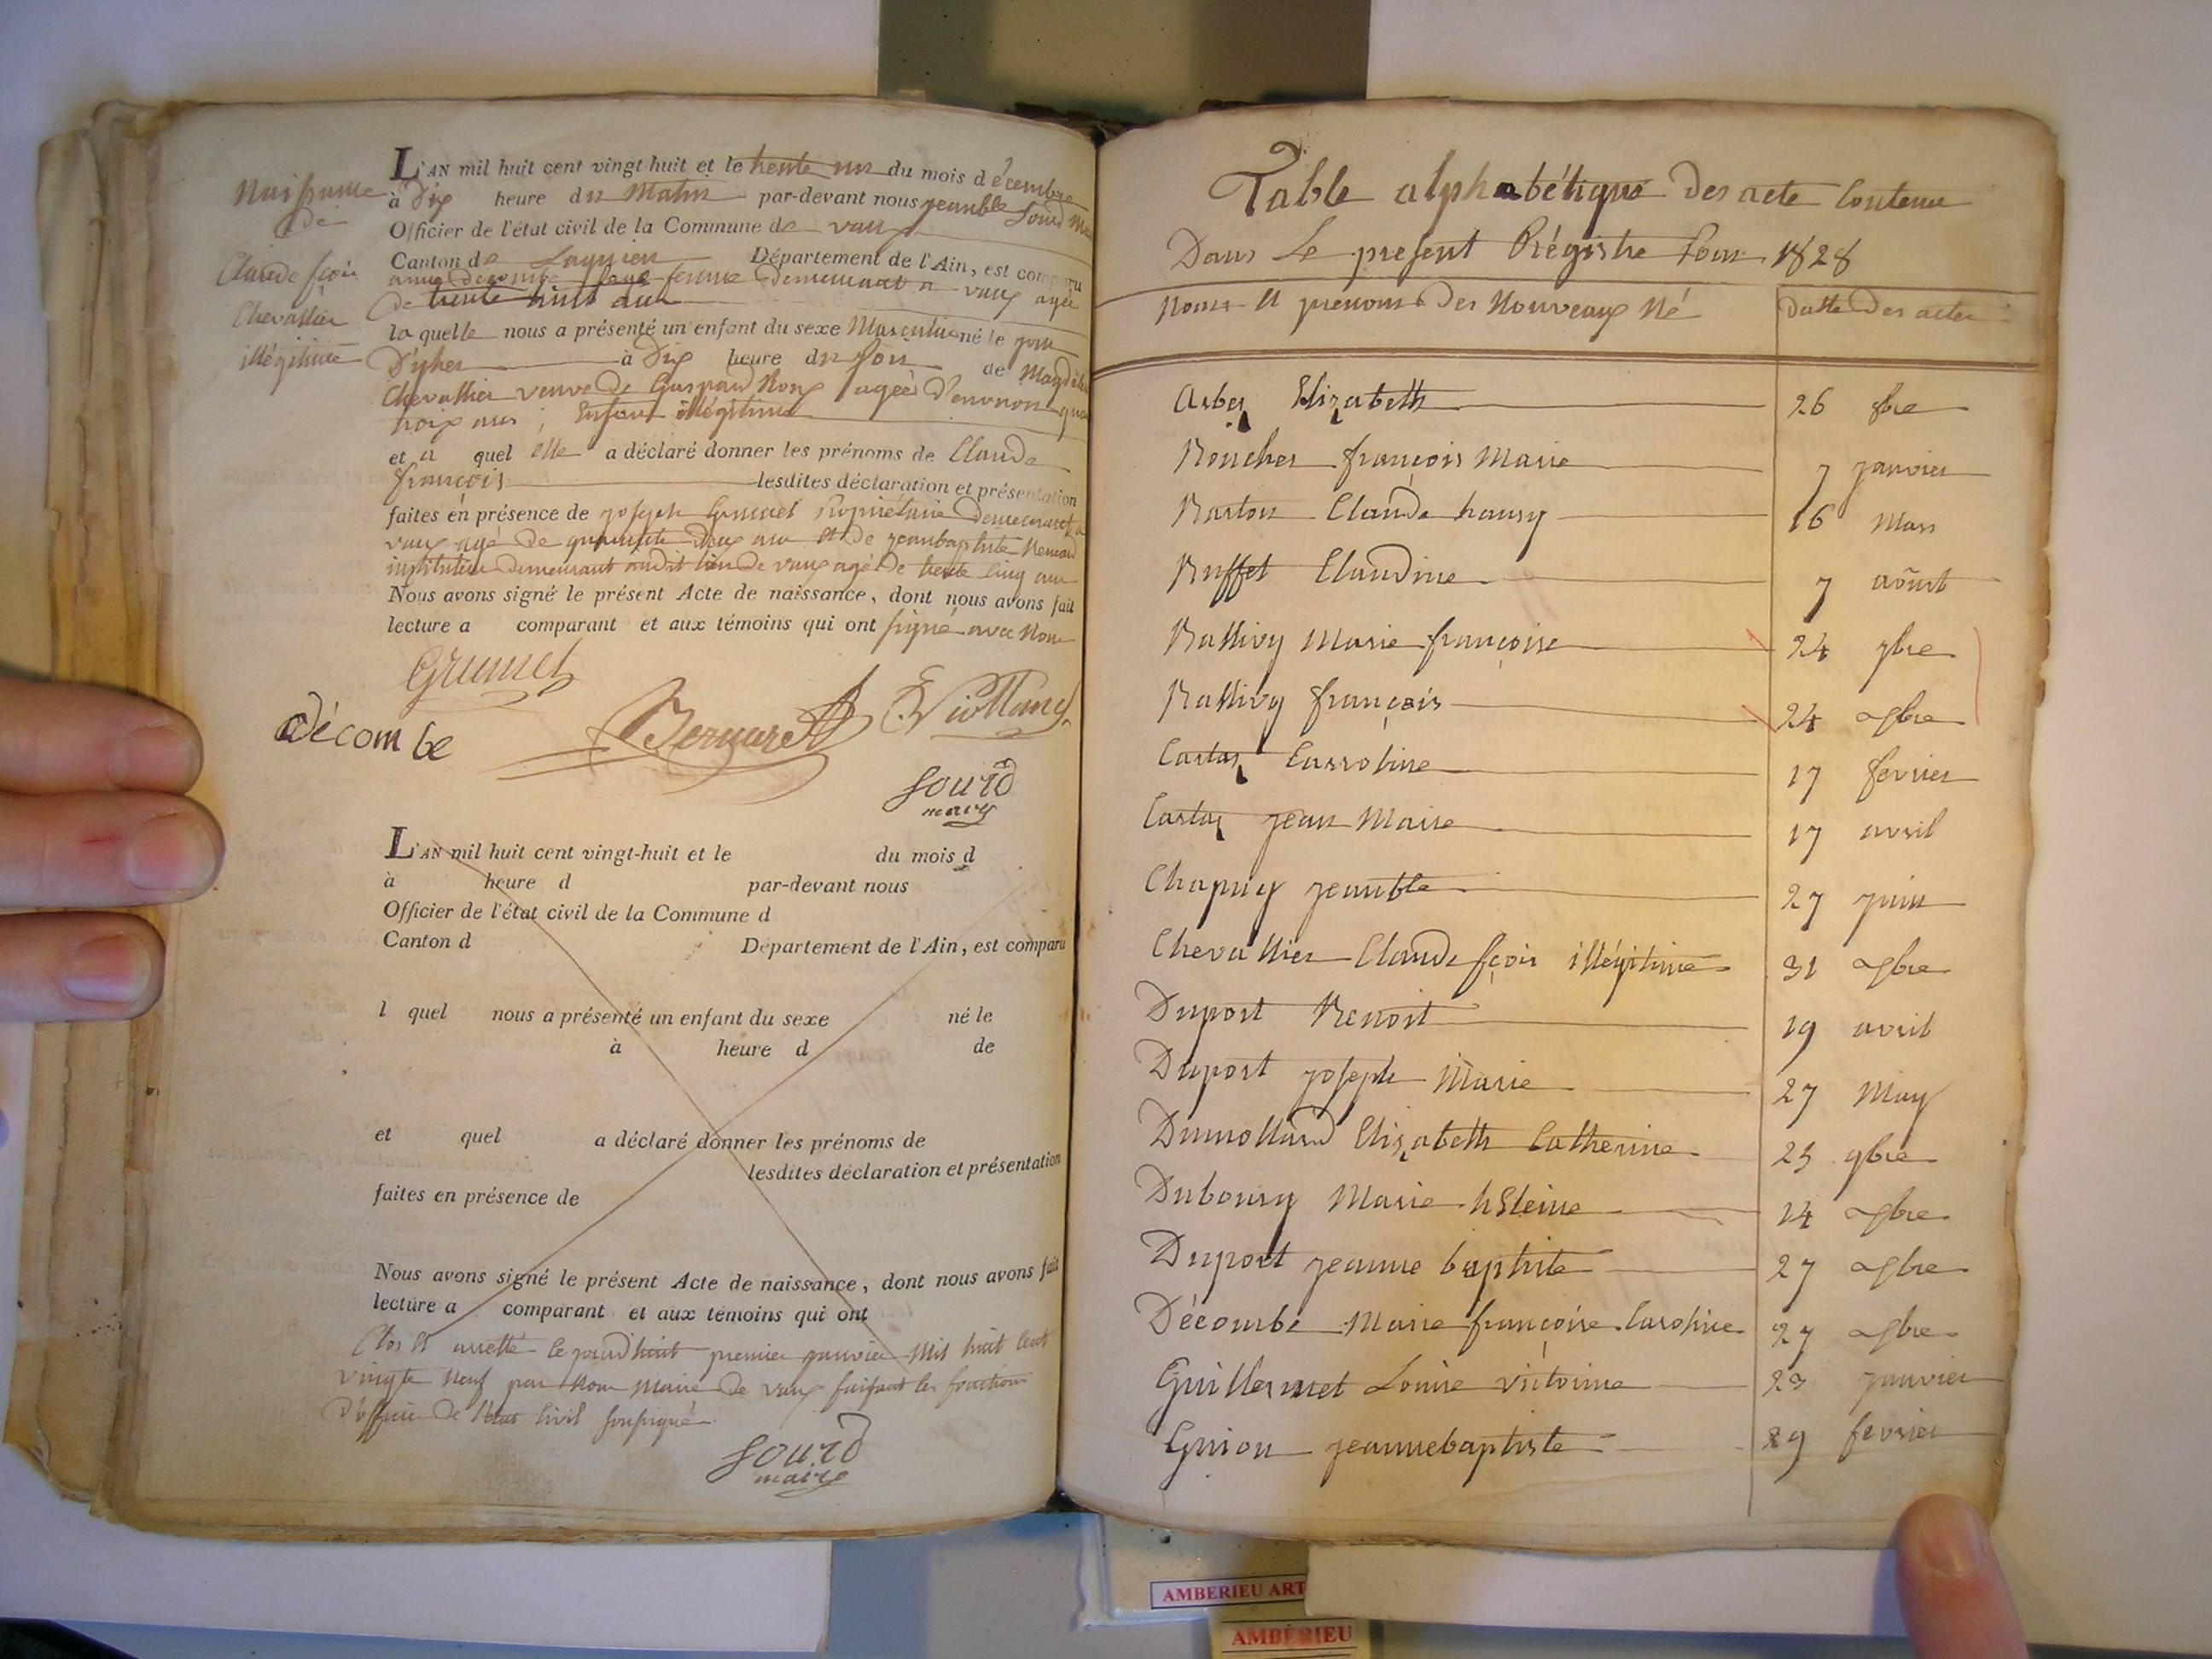 Naissance
de
Claude fçois
Chevallier
illégitime
L'AN mil huit cent vingt-huit et le trente un du mois décembre
à Dix heure du Matin par-devant nous jeanbte Sourd
Officier de l'état civil de la Commune de vaux
Canton de Lagnieu Département de l'Ain, est comparu
femme demeurant a vaux agée
de trente huit ans
la quelle nous a présenté un enfant du sexe Masculin né le jour
D'yher à Dix heure du soir de
Chevallier veuve de Gaspard Roux agée D'environ
trois ans, Enfant illégitime
et a quel elle a déclaré donner les prénoms de Claude
françois lesdites déclaration et présentation
faites en présence de joseph Grumet Propriétaire demeurant a
vaux agé de quarante Deux ans Et de jeanbaptiste Bernard
instituteur demeurant audit lieu de vaux agé de trente cinq ans
Nous avons signé le présent Acte de naissance, dont nous avons fait
lecture a comparant et aux témoins qui ont signé avec Nous
Grumet
décombe Bernard
Sourd
maire
L'AN mil huit cent vingt-huit et le du mois d
à heure d par-devant nous
Officier de l'état civil de la Commune d
Canton d Département de l'Ain, est comparu
l quel nous a présenté un enfant du sexe né le
à heure d de
et quel a déclaré donner les prénoms de
lesdites déclaration et présentation
faites en présence de
Nous avons signé le présent Acte de naissance, dont nous avons fait
lecture a comparant et aux témoins qui ont
Clos Et arretté Le jourd'huit premier janvier Mil huit Cent
vingte Neuf par Nous Maire de vaux faisant les fonction
D'officier De l'état Civil soussigné
Sourd
maire
Table alphabétique Des acte Contenu
Dans Le present Régistre Pour 1828
Noms Et prenoms Des Nouveaux Né Datte Des actes
Elizabeth 26
Boucher françois Marie 7 janvier
Barton Claude hanry 16 Mars
Buffet Claudine 7 aôust
Ballivy Marie françoise 24
Ballivy françois 24
Castaz Carroline 17 fevrier
Castaz jean Marie 17 avril
Chapuy jeanbte 27 juin
Chevallier Claude fçois illégitime 31
Duport Benoit 19 avril
Duport joseph Marie 27 May
Dumollard Elizabeth Catherine 25 9bre
Dubourg Marie 14
Duport jeanne baptiste 27
Décombe Marie françoise Caroline 27
Guillermet Louise victoire 23 janvier
Guion jeannebaptiste 29 fevrier
AMBERIEU ART
AMBÉRIEU